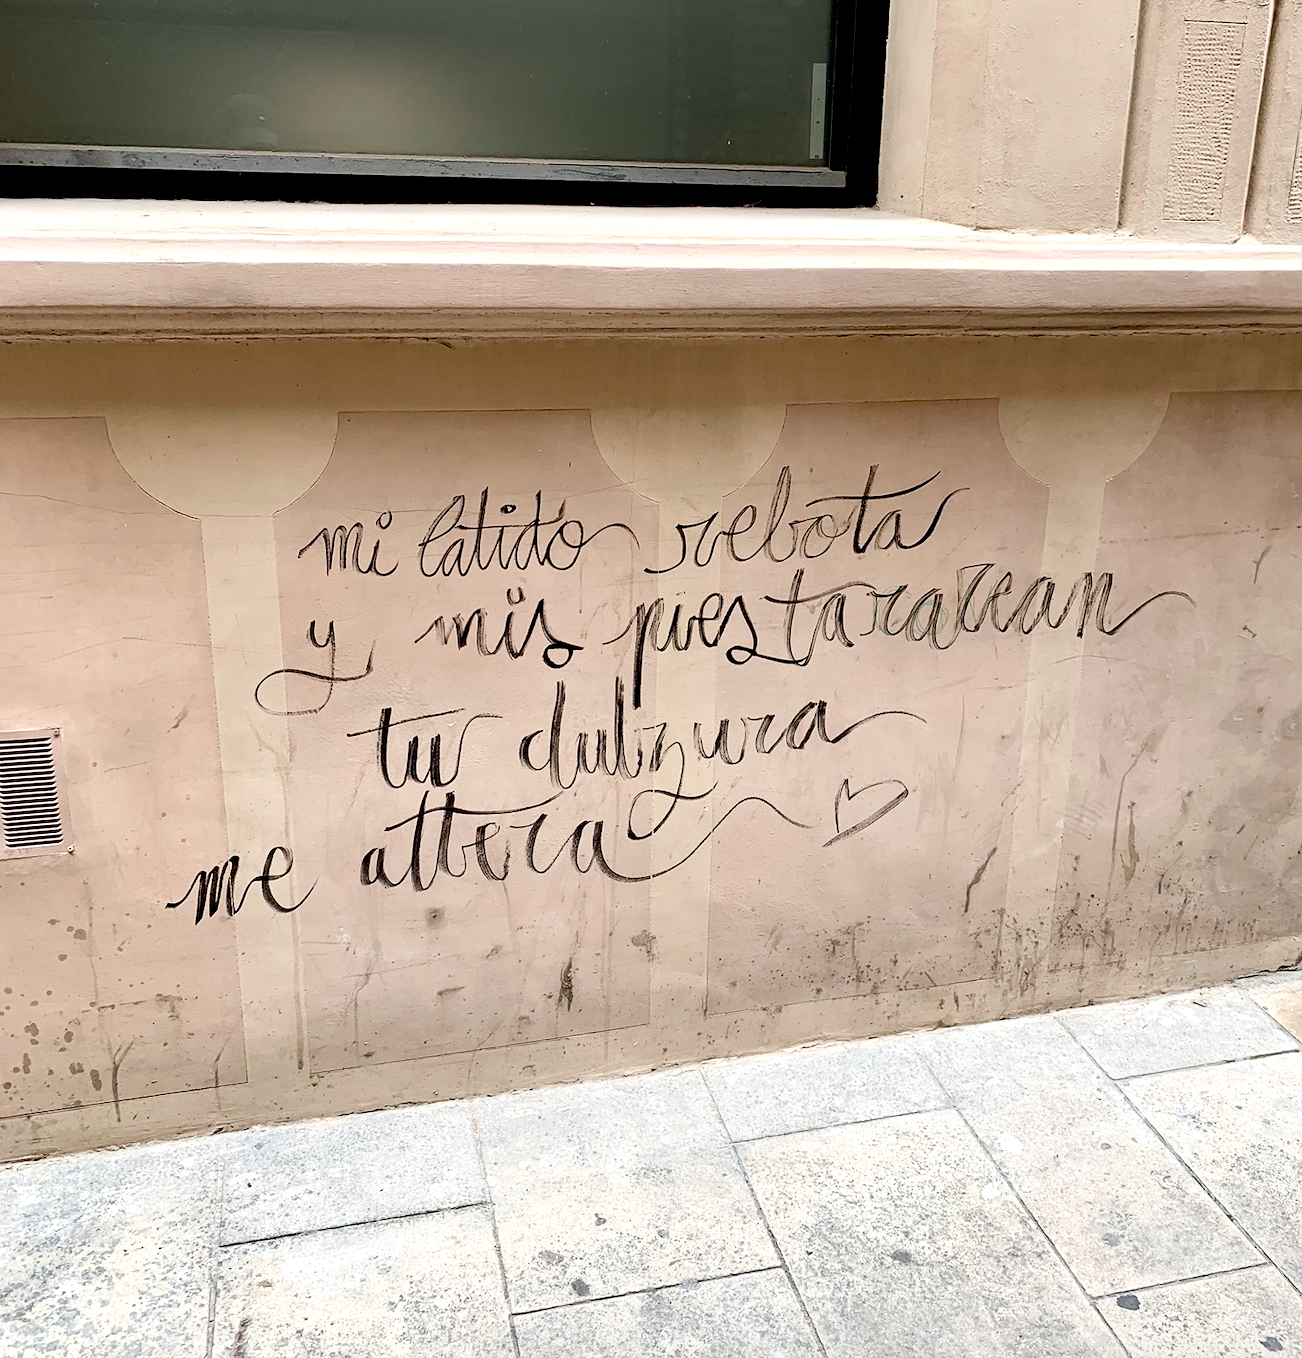 mi latido rebota
y mis pies tararean
tu dulzura
me altera